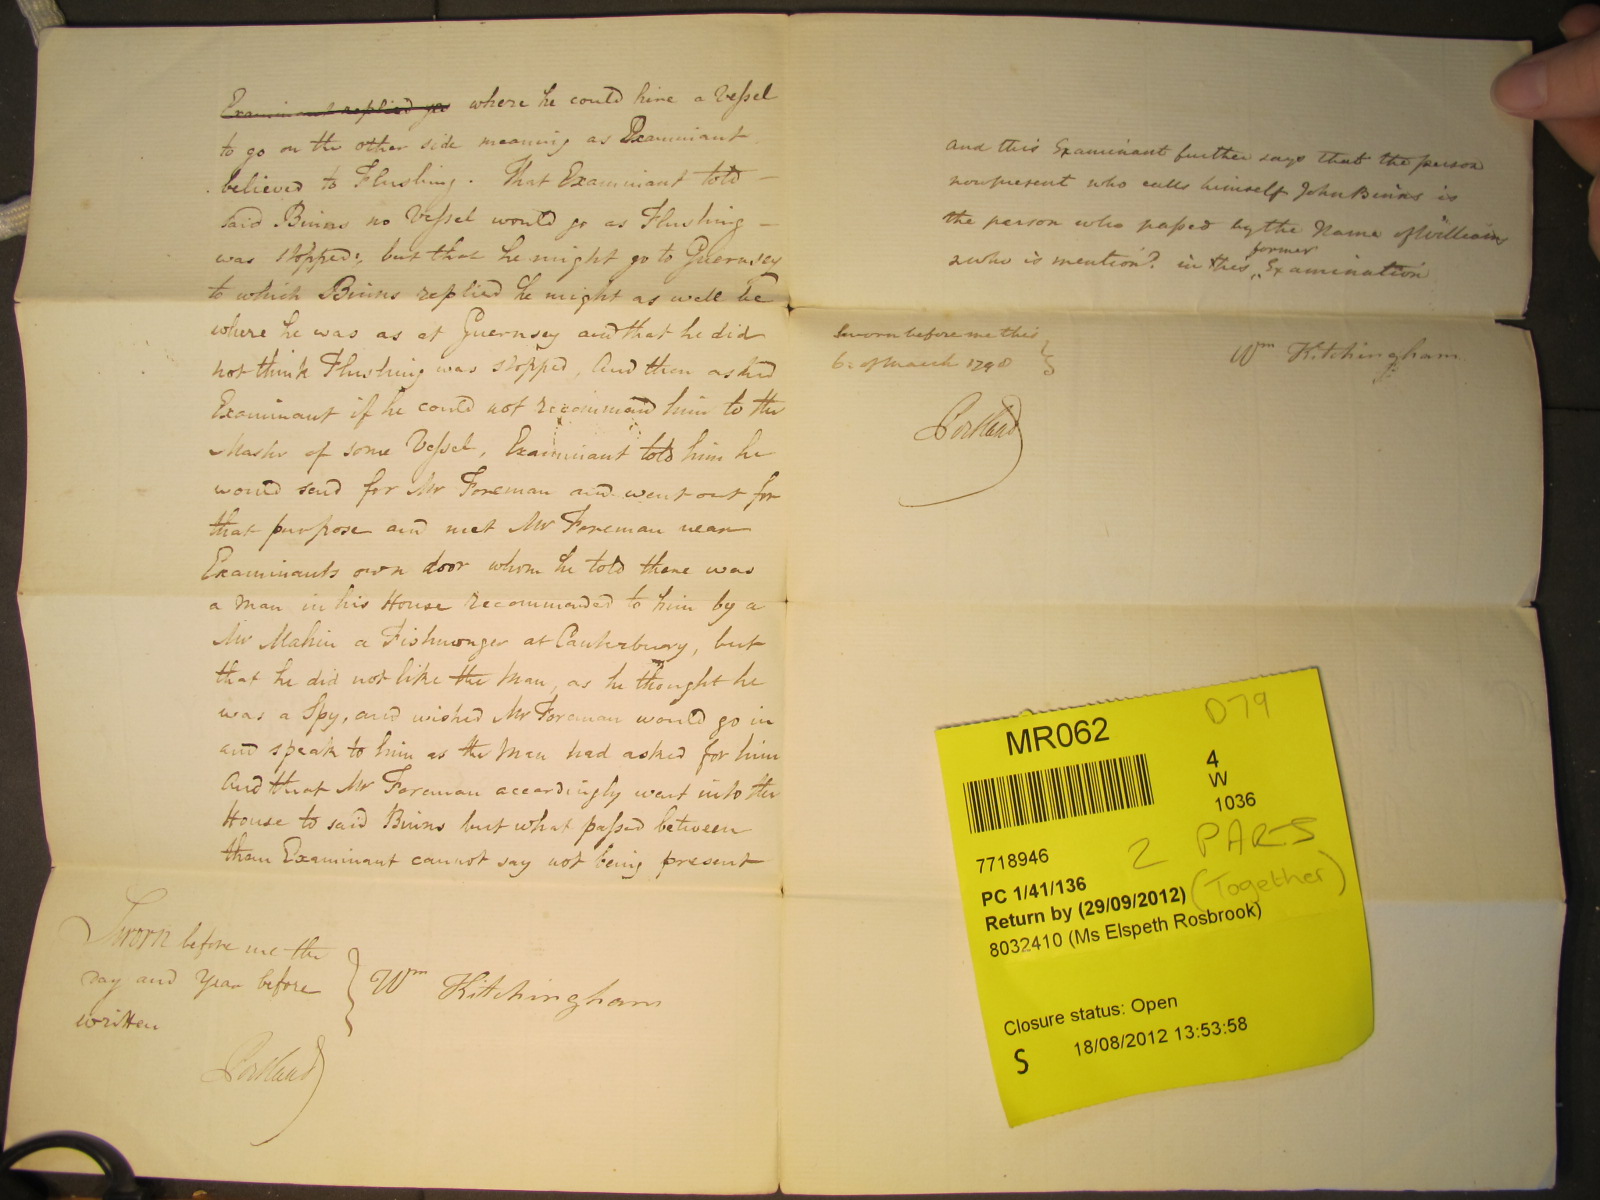 Examinant replied yes where he could hire a Vessel
to go on the other side meaning as Examinant
believed to Flushing. That Examinant told —
said Binns no Vessel would go as Flushing —
was stopped, but that he might go to Guernsey
to which Binns replied he might as well be
where he was as at Guernsey and that he did
not think Flushing was stopped, And then asked
Examinant if he could not recommend him to the
Master of some Vessel, Examinant told him he
would send for Mr Foreman and went out for
that purpose and met Mr Foreman near
Examinants own door whom he told there was
a Man in his House recommended to him by a
Mr Mahin a Fishmonger at Canterbury, but
that he did not like the Man, as he thought he
was a Spy, and wished Mr Foreman would go in
and speak to him as the Man had asked for him
And that Mr Foreman accordingly went into the
House to said Binns but what passed between
them Examinant cannot say not being present
Sworn before me the
day and Year before
written
Wm Kitchingham
Portland
and this Examinant further says that the person
now present who calls himself John Binns is
the person who passed by the Name of Williams
who is mention'd in this former Examination
Sworn before me this
6: of March 1798
Wm Kitchingham
Portland
MR062
D79
4
W
1036
2 PARTS
(Together)
7718946
PC 1/41/136
Return by (29/09/2012)
8032410 (Ms Elspeth Rosbrook)
Closure status: Open
S 18/08/2012 13:53:58